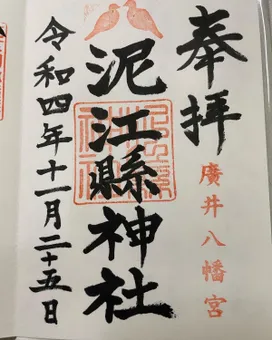 奉拝
廣井八幡宮
泥江縣神社
令和四年十一月二十五日